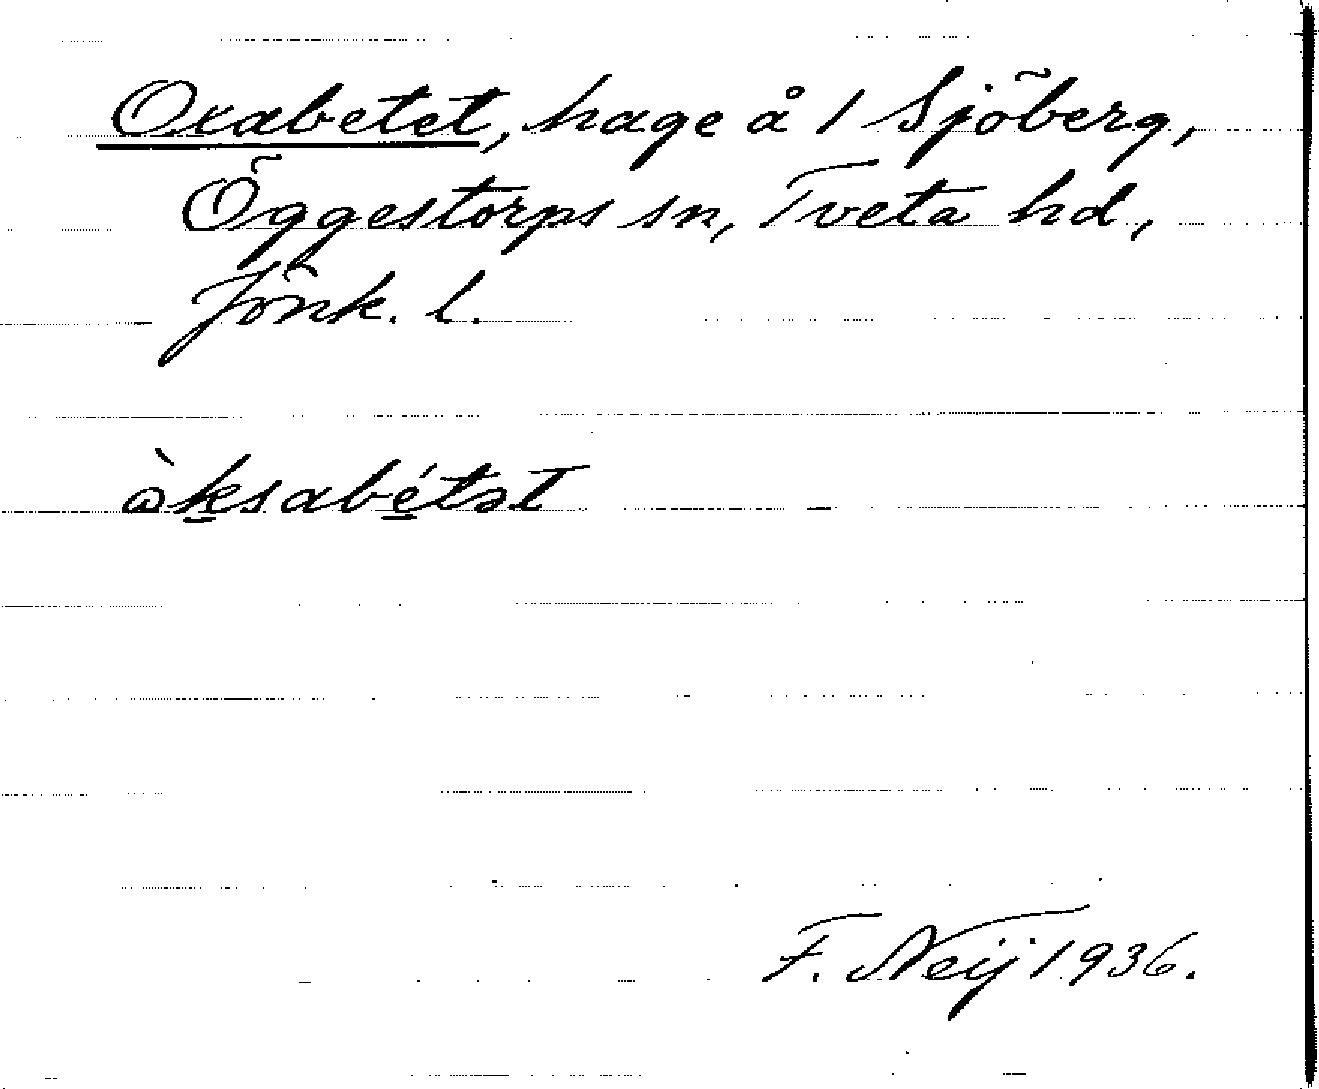 Oxabetet, hage å 1 Sjöberg,
Öggestorps sn, Tveta hd,
Jönk. l.
ò̱ksabé̱tət
F. Neij 1936.